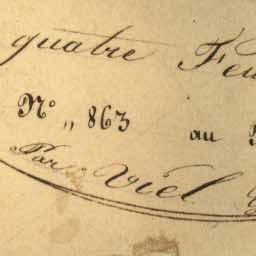 quatre
N° „ 863 au
Par Viel